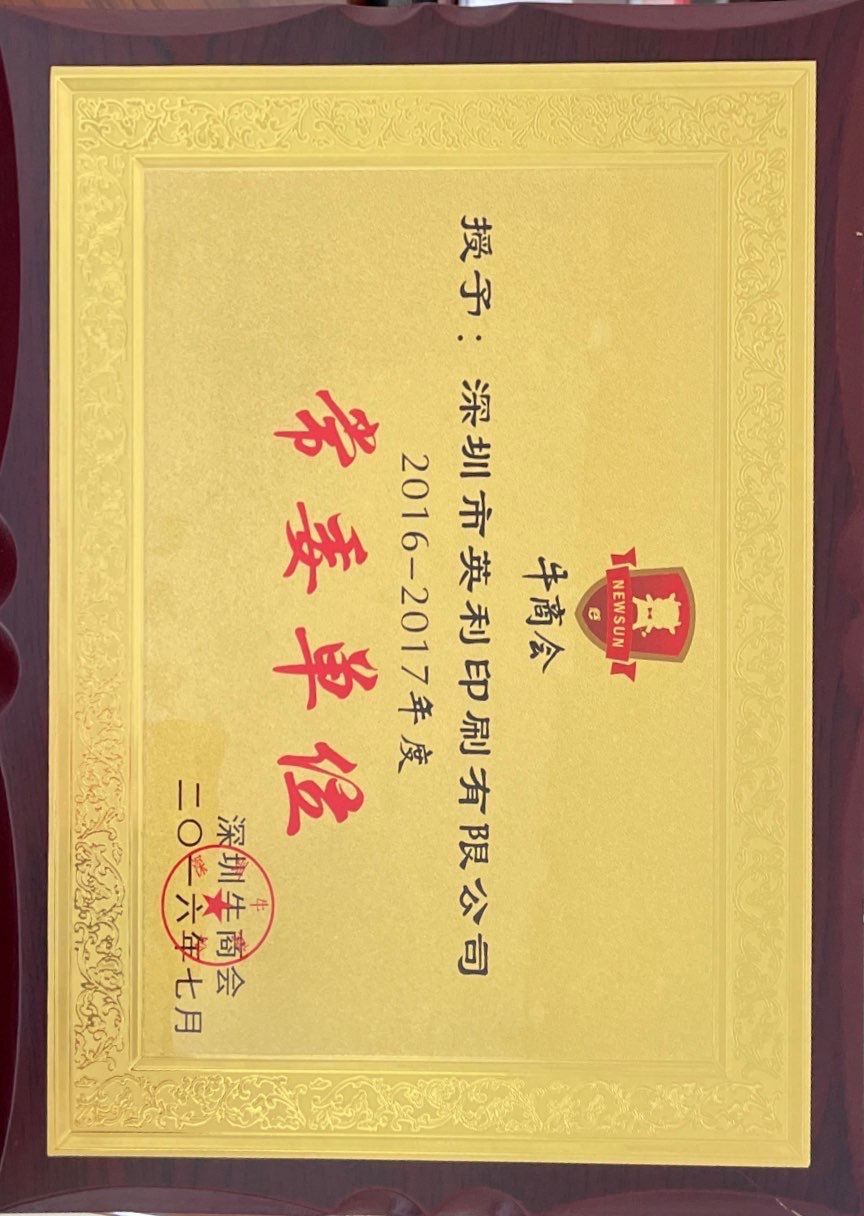 NEWSUN
e
牛商会
授予：深圳市英利印刷有限公司
2016-2017年度
常委单位
深圳牛商会
二〇一六年七月